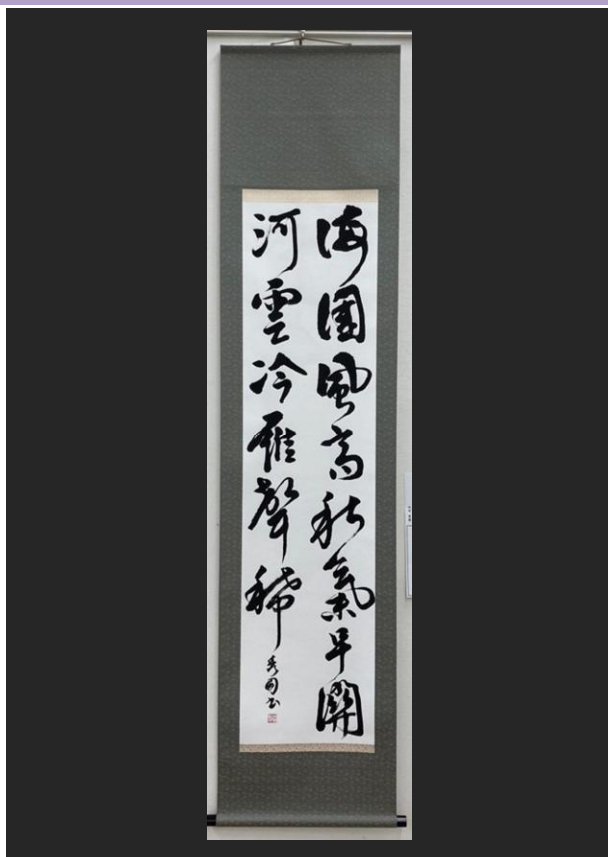 海国風高秋気早関
河雲冷雁聲稀
秀司書